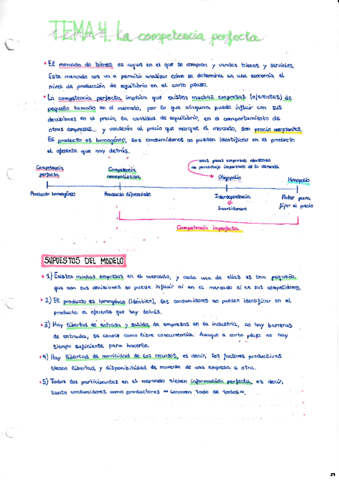 TEMA 4. La competencia perfecta
• El mercado de bienes es aquel en el que se compran y venden bienes y servicios.
Este mercado nos va a permitir analizar cómo se determina en una economía el
nivel de producción de equilibrio en el corto plazo.
• La competencia perfecta implica que existen muchas empresas (oferentes) de
pequeño tamaño en el mercado, por lo que ninguna puede influir con sus
decisiones en el precio, la cantidad de equilibrio, en el comportamiento de
otras empresas... y venderán al precio que marque el mercado, son precio aceptantes.
El producto es homogéneo, los consumidores no pueden identificar en el producto
el oferente que hay detrás.
unas pocas empresas abastecen
un porcentaje importante de la demanda
Competencia perfecta
Competencia monopolística
Oligopolio
Monopolio
Producto homogéneo
Producto diferenciado
Interdependencia
Incertidumbre
Poder para
fijar el precio
Competencia imperfecta
SUPUESTOS DEL MODELO
• 1) Existen muchas empresas en el mercado, y cada una de ellas es tan pequeña
que con sus decisiones no puede influir ni en el mercado ni en sus competidores.
• 2) El producto es homogéneo (idéntico), los consumidores no pueden identificar en el
producto el oferente que hay detrás.
• 3) Hay libertad de entrada y salida de empresas en la industria, no hay barreras
de entrada, se conoce como libre concurrencia. Aunque a corto plazo no hay
tiempo suficiente para hacerlo.
• 4) Hay libertad de movilidad de los recursos, es decir, los factores productivos
tienen libertad y disponibilidad de moverse de una empresa a otra.
• 5) Todos los participantes en el mercado tienen información perfecta, es decir,
tanto consumidores como productores "conocen todo de todos".